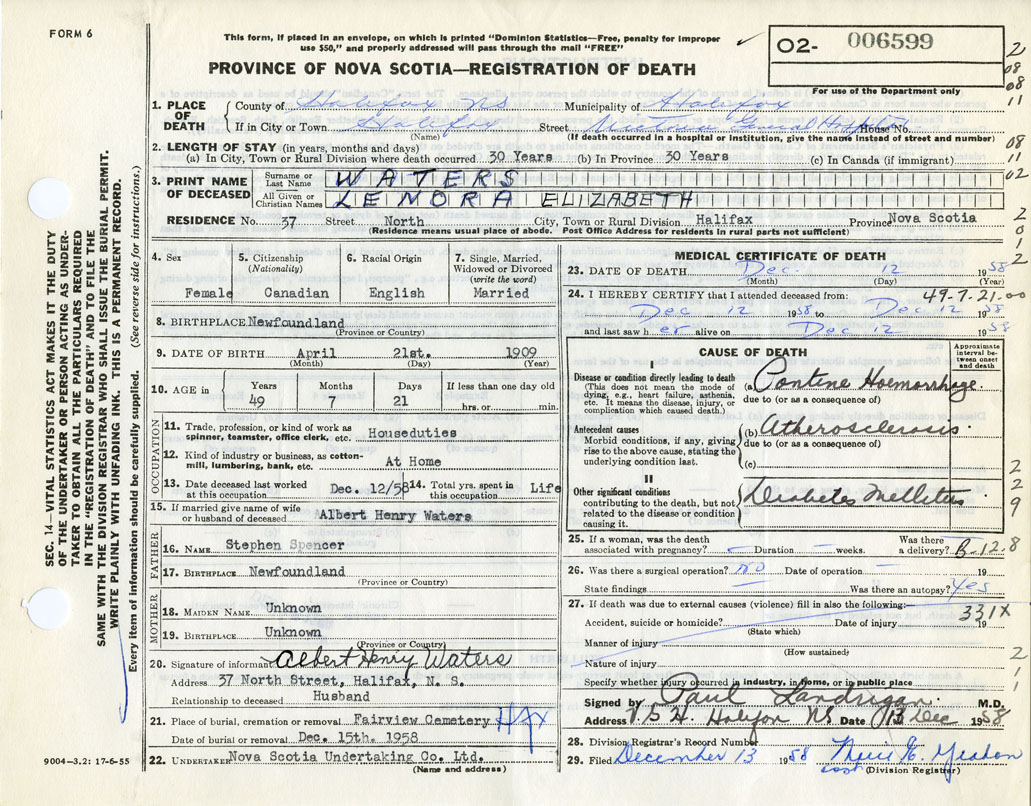 FORM 6
This form, if placed in an envelope, on which is printed "Dominion Statistics—Free, penalty for improper
use $50," and properly addressed will pass through the mail "FREE"
PROVINCE OF NOVA SCOTIA—REGISTRATION OF DEATH
O2- 006599
For use of the Department only
1. PLACE OF DEATH
County of Halifax NS Municipality of Halifax
If in City or Town Halifax Street Victoria General Hospital House No.
(Name) (If death occurred in a hospital or institution, give the name instead of street and number)
2. LENGTH OF STAY (in years, months and days)
(a) In City, Town or Rural Division where death occurred 30 Years (b) In Province 30 Years (c) In Canada (if immigrant)
3. PRINT NAME OF DECEASED
Surname or Last Name WATERS
All Given or Christian Names LENORA ELIZABETH
RESIDENCE No. 37 Street North City, Town or Rural Division Halifax Province Nova Scotia
(Residence means usual place of abode. Post Office Address for residents in rural parts not sufficient)
4. Sex Female
5. Citizenship (Nationality) Canadian
6. Racial Origin English
7. Single, Married, Widowed or Divorced (write the word) Married
8. BIRTHPLACE Newfoundland
(Province or Country)
9. DATE OF BIRTH April 21st. 1909
(Month) (Day) (Year)
10. AGE in Years Months Days If less than one day old
49 7 21 hrs. or min.
OCCUPATION
11. Trade, profession, or kind of work as spinner, teamster, office clerk, etc. Houseduties
12. Kind of industry or business, as cotton-mill, lumbering, bank, etc. At Home
13. Date deceased last worked at this occupation Dec. 12/58
14. Total yrs. spent in this occupation Life
15. If married give name of wife or husband of deceased Albert Henry Waters
FATHER
16. NAME Stephen Spencer
17. BIRTHPLACE Newfoundland
(Province or Country)
MOTHER
18. MAIDEN NAME Unknown
19. BIRTHPLACE Unknown
(Province or Country)
20. Signature of informant Albert Henry Waters
Address 37 North Street, Halifax, N. S.
Relationship to deceased Husband
21. Place of burial, cremation or removal Fairview Cemetery Hfx
Date of burial or removal Dec. 15th. 1958
22. UNDERTAKER Nova Scotia Undertaking Co. Ltd.
(Name and address)
MEDICAL CERTIFICATE OF DEATH
23. DATE OF DEATH Dec. 12 1958
(Month) (Day) (Year)
24. I HEREBY CERTIFY that I attended deceased from: 49-7-21-00
Dec 12 1958 to Dec 12 1958
and last saw her alive on Dec 12 1958
CAUSE OF DEATH
Approximate interval between onset and death
I
Disease or condition directly leading to death
(This does not mean the mode of dying, e.g., heart failure, asthenia, etc. It means the disease, injury, or complication which caused death.)
(a) Pontine Haemorrhage
due to (or as a consequence of)
Antecedent causes
Morbid conditions, if any, giving rise to the above cause, stating the underlying condition last.
(b) Atherosclerosis
due to (or as a consequence of)
(c)
II
Other significant conditions
contributing to the death, but not related to the disease or condition causing it.
Diabetes Mellitus
25. If a woman, was the death associated with pregnancy? Duration weeks. Was there a delivery? B-12-8
26. Was there a surgical operation? no Date of operation 19
State findings Was there an autopsy? Yes
27. If death was due to external causes (violence) fill in also the following:
331X
Accident, suicide or homicide? Date of injury 19
(State which)
Manner of injury
(How sustained)
Nature of injury
Specify whether injury occurred in industry, in home, or in public place
Signed by Paul Landrigan M.D.
Address V.G.H. Halifax NS Date 13 Dec 1958
28. Division Registrar's Record Number
29. Filed December 13 1958
(Division Registrar)
SEC. 14—VITAL STATISTICS ACT MAKES IT THE DUTY
OF THE UNDERTAKER OR PERSON ACTING AS UNDER-
TAKER TO OBTAIN ALL THE PARTICULARS REQUIRED
IN THE "REGISTRATION OF DEATH" AND TO FILE THE
SAME WITH THE DIVISION REGISTRAR WHO SHALL ISSUE THE BURIAL PERMIT.
WRITE PLAINLY WITH UNFADING INK. THIS IS A PERMANENT RECORD.
Every item of information should be carefully supplied. (See reverse side for instructions.)
9004-3.2: 17-6-55
2
08
08
11
08
11
02
2
0
1
2
2
2
9
2
1
1